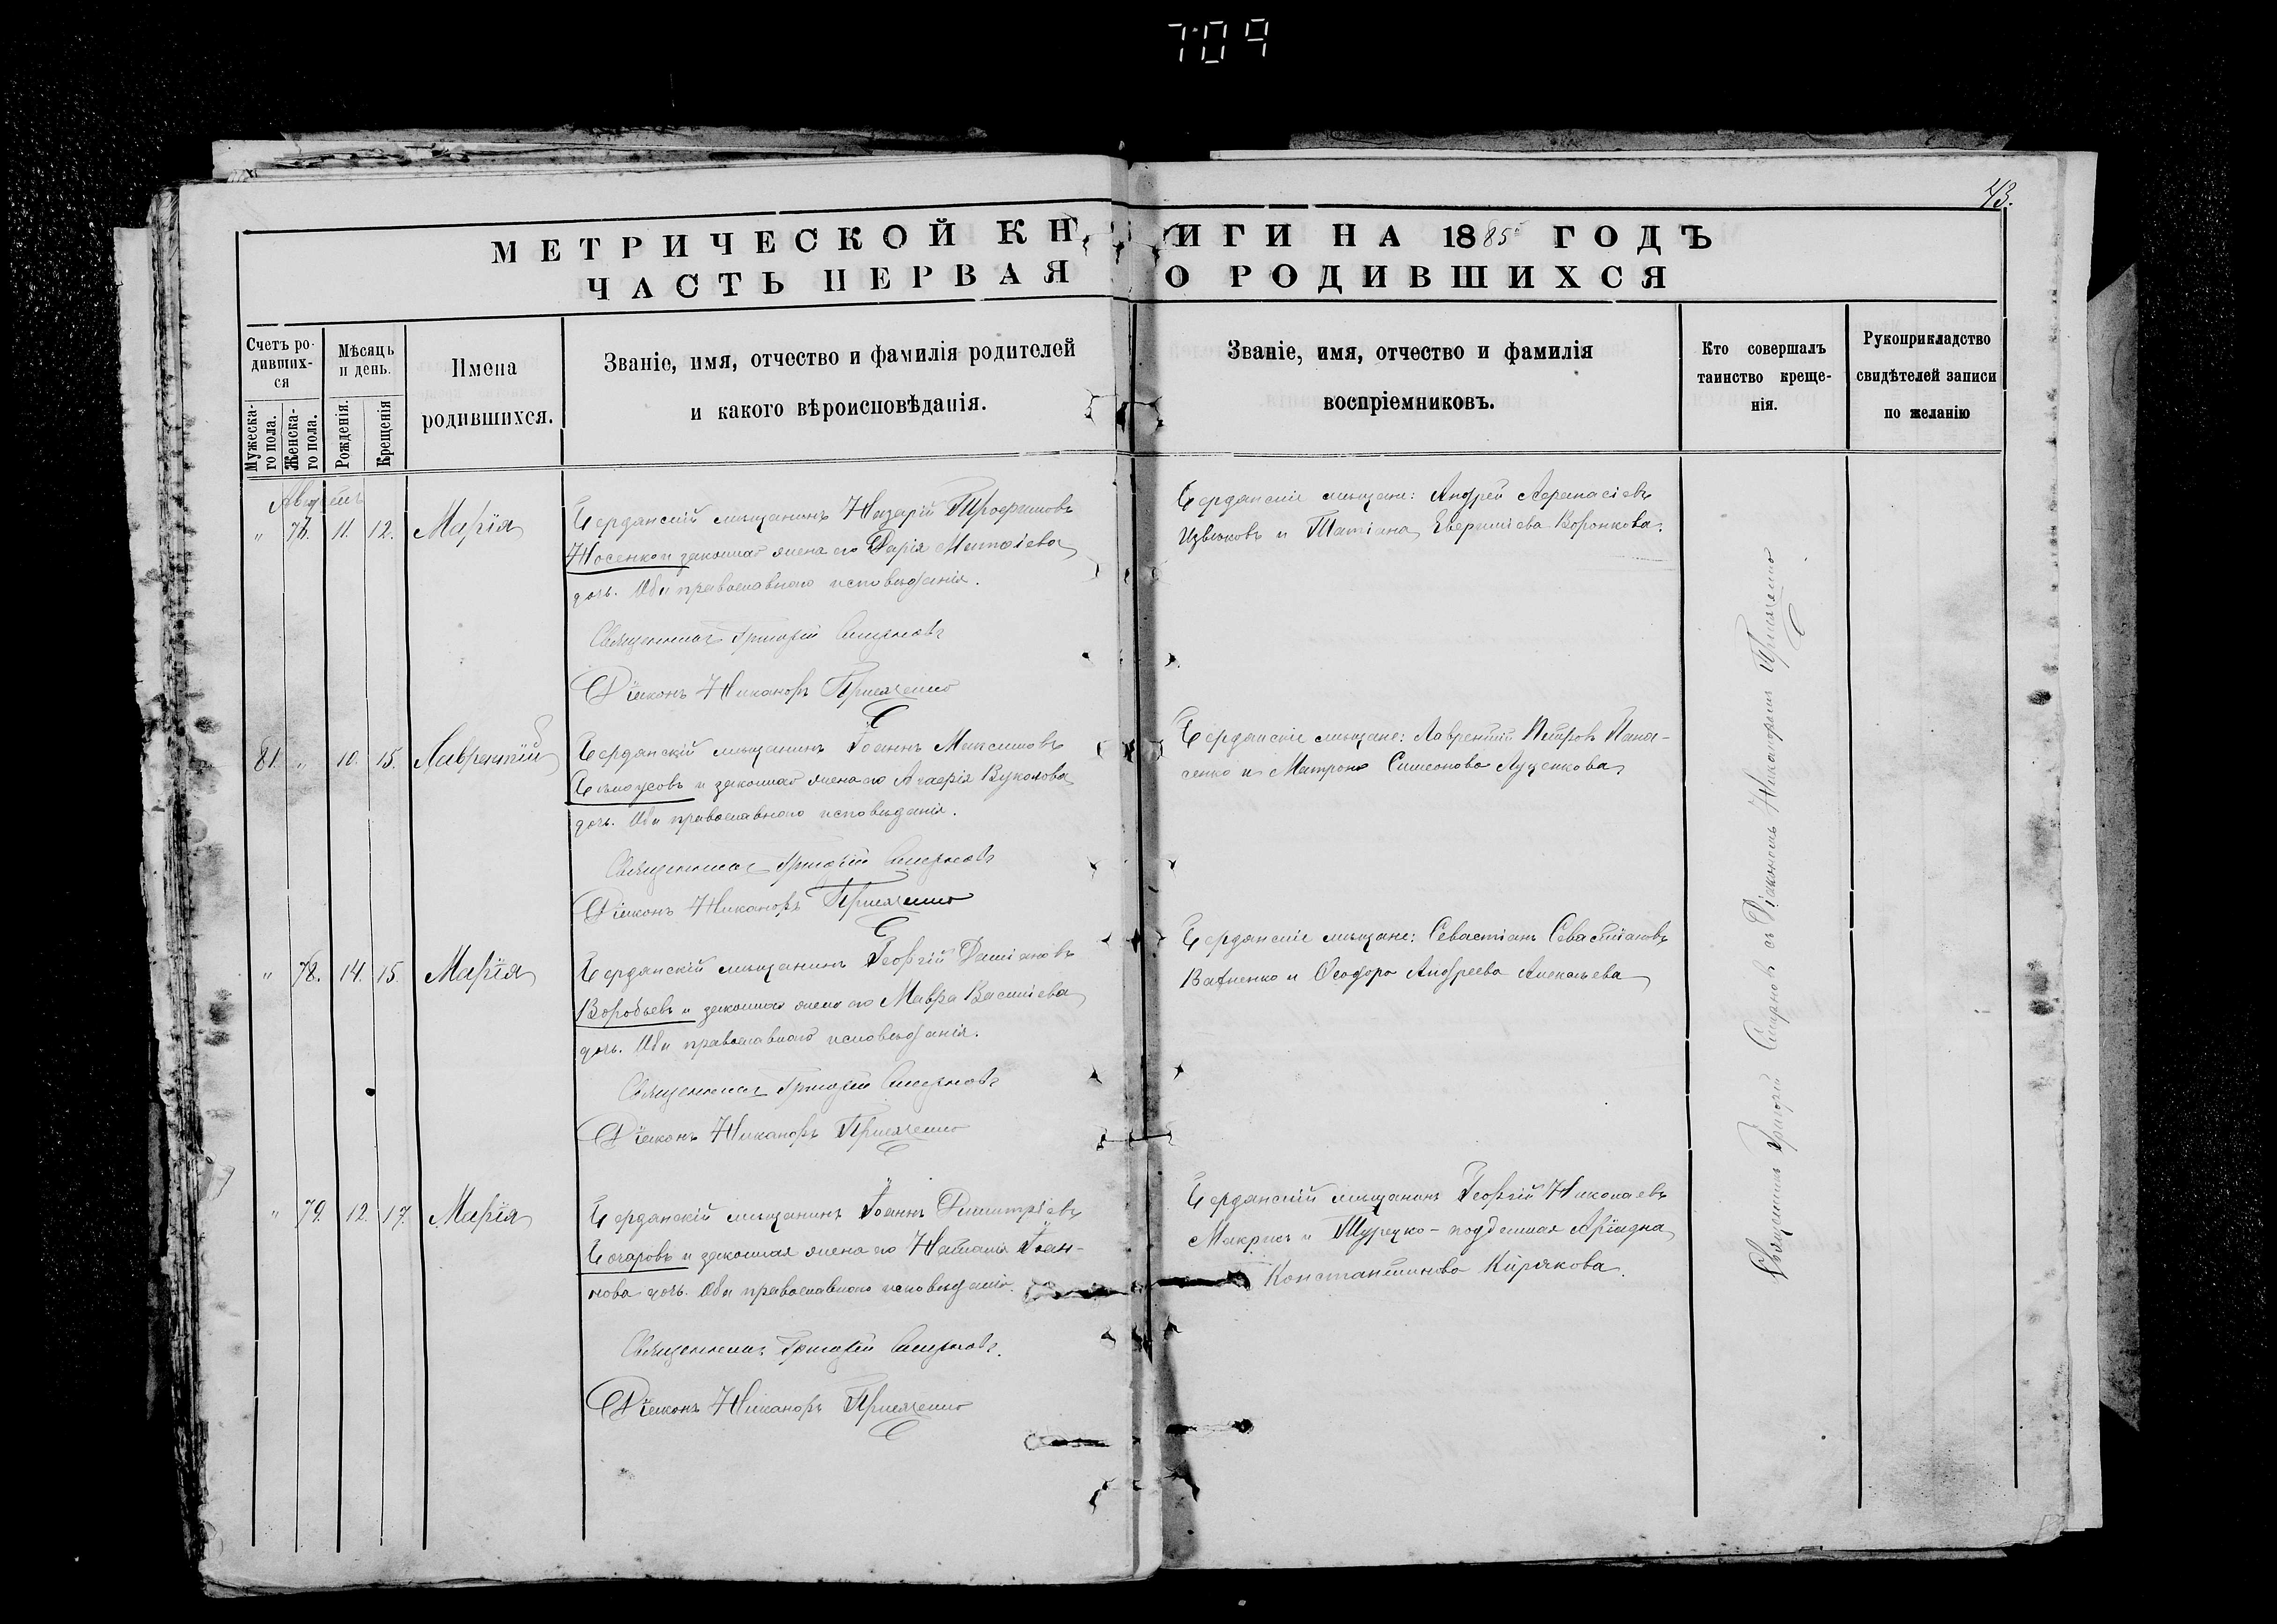 709
43.
МЕТРИЧЕСКОЙ КНИГИ НА 1885 ГОДЪ
ЧАСТЬ ПЕРВАЯ О РОДИВШИХСЯ
Счетъ родившихся
Мужескаго пола.
Женскаго пола.
Мѣсяцъ и день.
Рожденія.
Крещенія
Имена
родившихся.
Званіе, имя, отчество и фамилія родителей
и какого вѣроисповѣданія.
Званіе, имя, отчество и фамилія
воспріемниковъ.
Кто совершалъ
таинство креще-
нія.
Рукоприкладство
свидѣтелей записи
по желанію
" 11. 12. Марія
Бердянскій мѣщанинъ Назарій Трофимовъ
Носенко и законная жена его Дарія
дочь. Оба православнаго исповѣданія.
Священникъ Григорій Смирновъ
Діаконъ Никаноръ
Бердянскіе мѣщане: Андрей Афанасіевъ
и Татіана Воронкова.
81. " 10. 15. Лаврентій
Бердянскій мѣщанинъ Іоаннъ Максимовъ
Бѣлоусовъ и законная жена его Вуколова
дочь. Оба православнаго исповѣданія.
Священникъ Григорій Смирновъ
Діаконъ Никаноръ
Бердянскіе мѣщане: Лаврентій Петровъ Пана-
сенко и Матрона Симеонова Луценкова
" 78. 14. 15. Марія
Бердянскій мѣщанинъ Георгій Даміановъ
Воробьевъ и законная жена его Мавра Василіева
дочь. Оба православнаго исповѣданія.
Священникъ Григорій Смирновъ
Діаконъ Никаноръ
Бердянскіе мѣщане: Севастіанъ Севастіановъ
и Ѳеодора Андреева
" 79. 12. 17. Марія
Бердянскій мѣщанинъ Іоаннъ Димитріевъ
и законная жена его Наталія Іоан-
нова дочь. Оба православнаго исповѣданія.
Священникъ Григорій Смирновъ.
Діаконъ Никаноръ
Бердянскій мѣщанинъ Георгій Николаевъ
Макрисъ и Турецко-подданная Аріадна
Константинова Кирякова.
Священникъ Григорій Смирновъ съ Діакономъ Никаноромъ